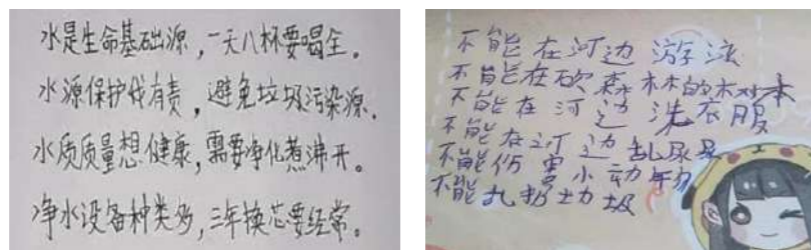 水是生命基础源，一天八杯要喝全。
水源保护我有责，避免垃圾污染源，
水质质量想健康，需要净化煮沸开。
净水设备种类多，三年换芯要经常。
不能在河边游泳
不能在砍森林的树木
不能在河边洗衣服
不能在河边乱尿尿
不能伤害小动物
不能乱扔垃圾